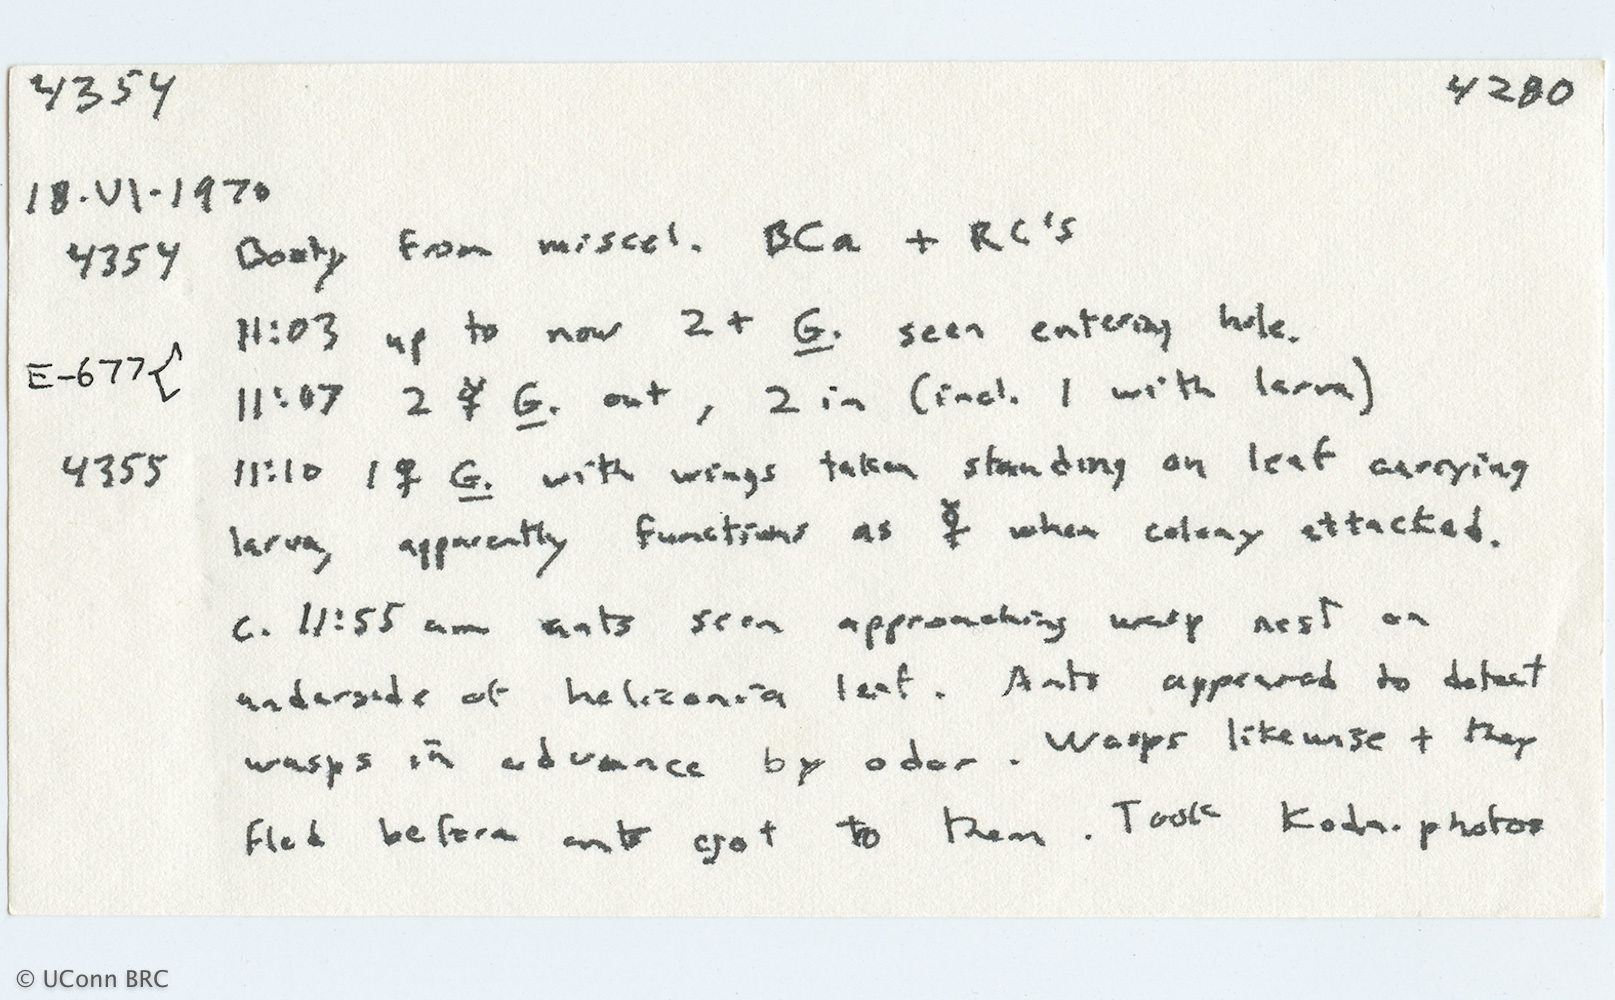 4354 4280
18.VI.1970
4354 Booty from miscel. BCa + RC's
11:03 up to now 2+ G. seen entering hole.
E-677{
11:07 2 ☿ G. out, 2 in (incl. 1 with larva)
4355 11:10 1♀ G. with wings taken standing on leaf carrying
larva, apparently functions as ☿ when colony attacked.
c. 11:55 am ants seen approaching wasp nest on
underside of heliconia leaf. Ants appeared to detect
wasps in advance by odor. Wasps likewise + they
fled before ants got to them. Took Koda. photos
© UConn BRC